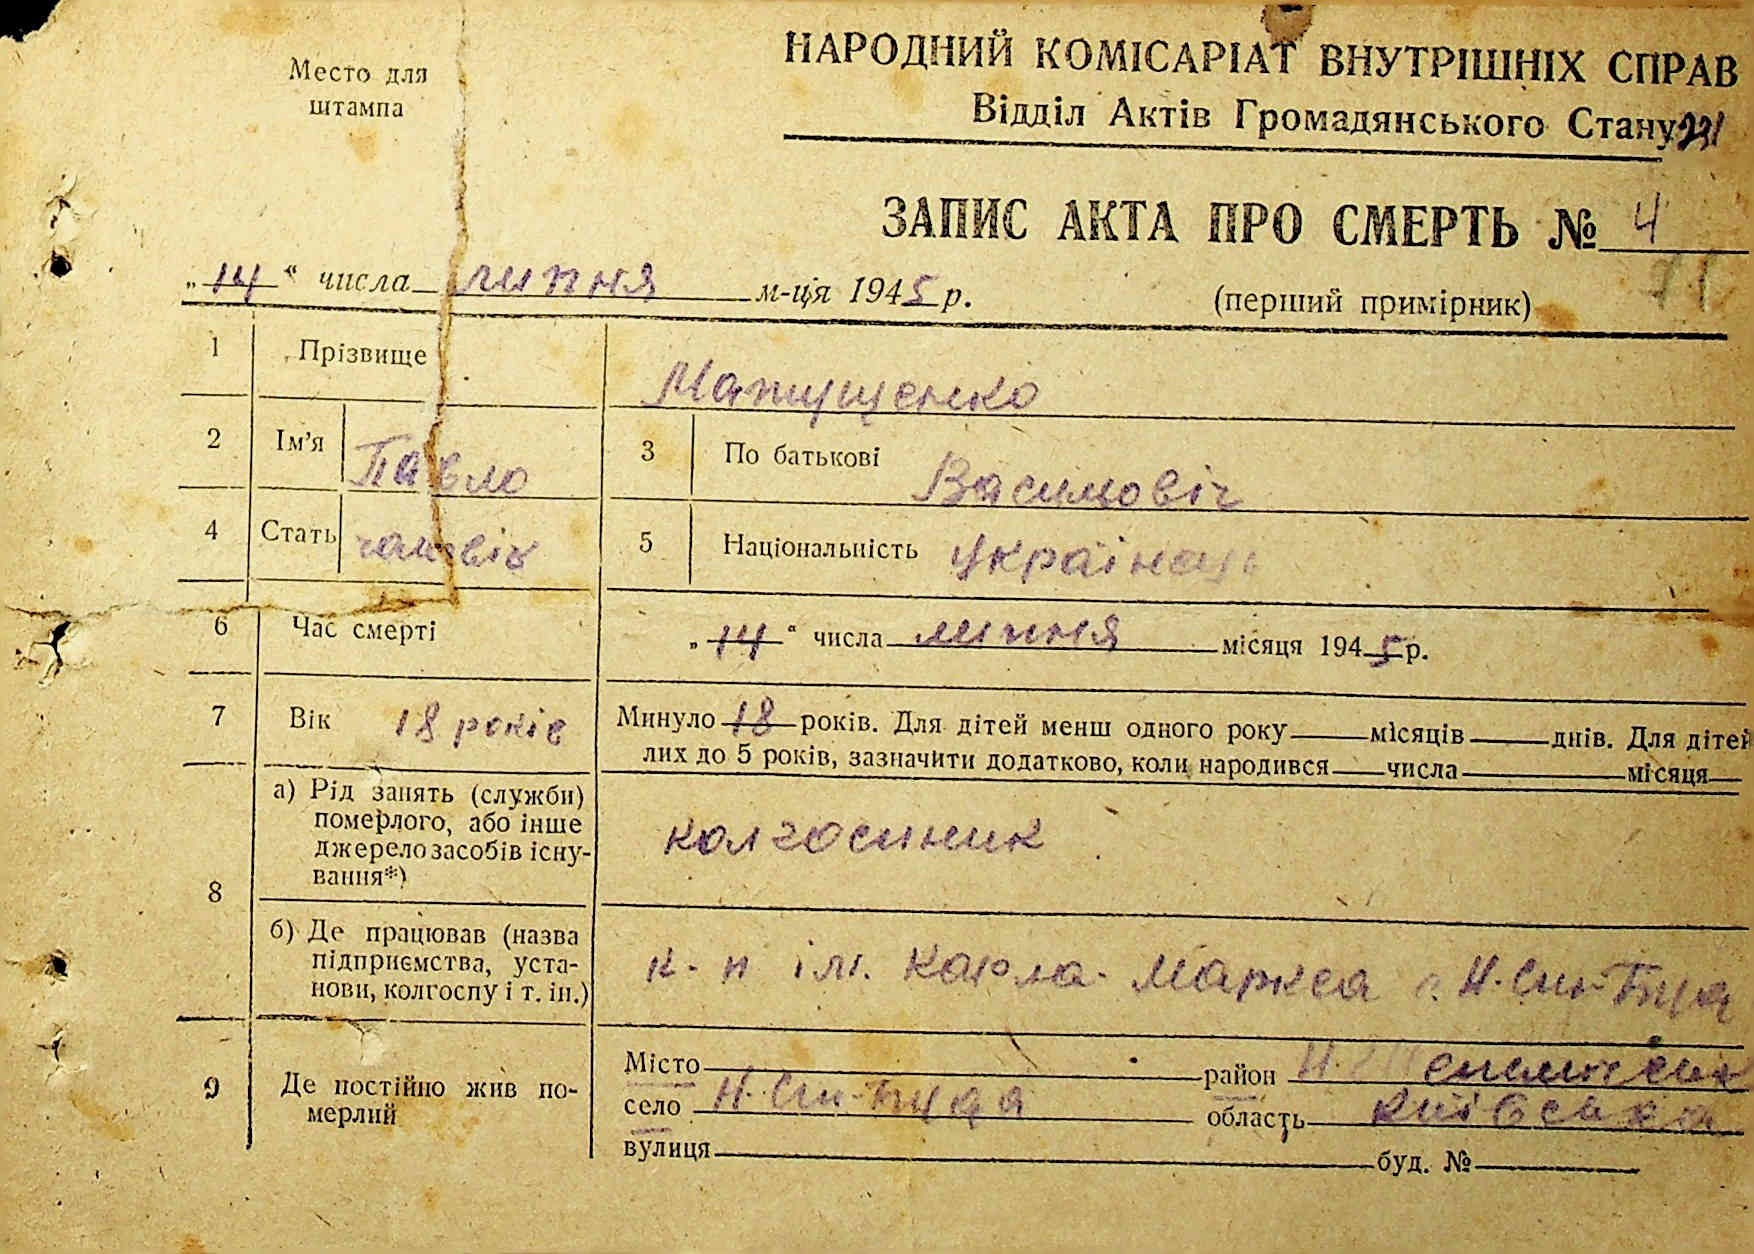 Место для
штампа
НАРОДНИЙ КОМІСАРІАТ ВНУТРІШНІХ СПРАВ
Відділ Актів Громадянського Стану
ЗАПИС АКТА ПРО СМЕРТЬ № 4
„14“ числа липня м-ця 1945 р.
(перший примірник)
1 Прізвище Матущенко
2 Ім'я Павло 3 По батькові Васильовіч
4 Стать чоловік 5 Національність Українець
6 Час смерті „14“ числа липня місяця 1945 р.
7 Вік 18 років Минуло 18 років. Для дітей менш одного року місяців днів. Для дітей
лих до 5 років, зазначити додатково, коли народився числа місяця
8 а) Рід занять (служби)
померлого, або інше
джерело засобів існу-
вання*)
колгоспник
б) Де працював (назва
підприємства, уста-
нови, колгоспу і т. ін.)
к-п ім. Карла Маркса с. Н.
9 Де постійно жив по-
мерлий
Місто район Н.
село Н. область Київська
вулиця буд. №